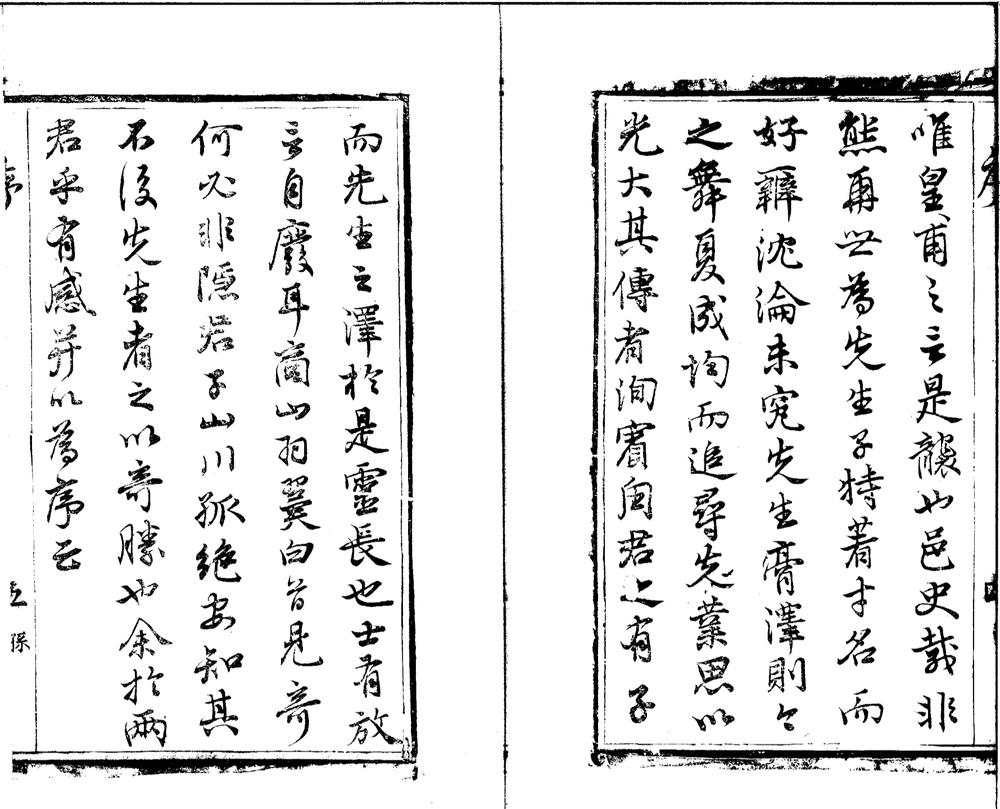 序
唯皇甫之云是襲也邑史載非
熊再世為先生子特著才名而
好辭沈淪未究先生膏澤則今
之舞夏成均而追尋先業思以
光大其傳者洵賓周君之有子
而先生之澤於是靈長也士有放
言自廢耳商山羽翼白首見奇
何必非隱君子山川孤絕安知其
不後先生者之以奇勝也余於兩
君乎有感并以為序云
序